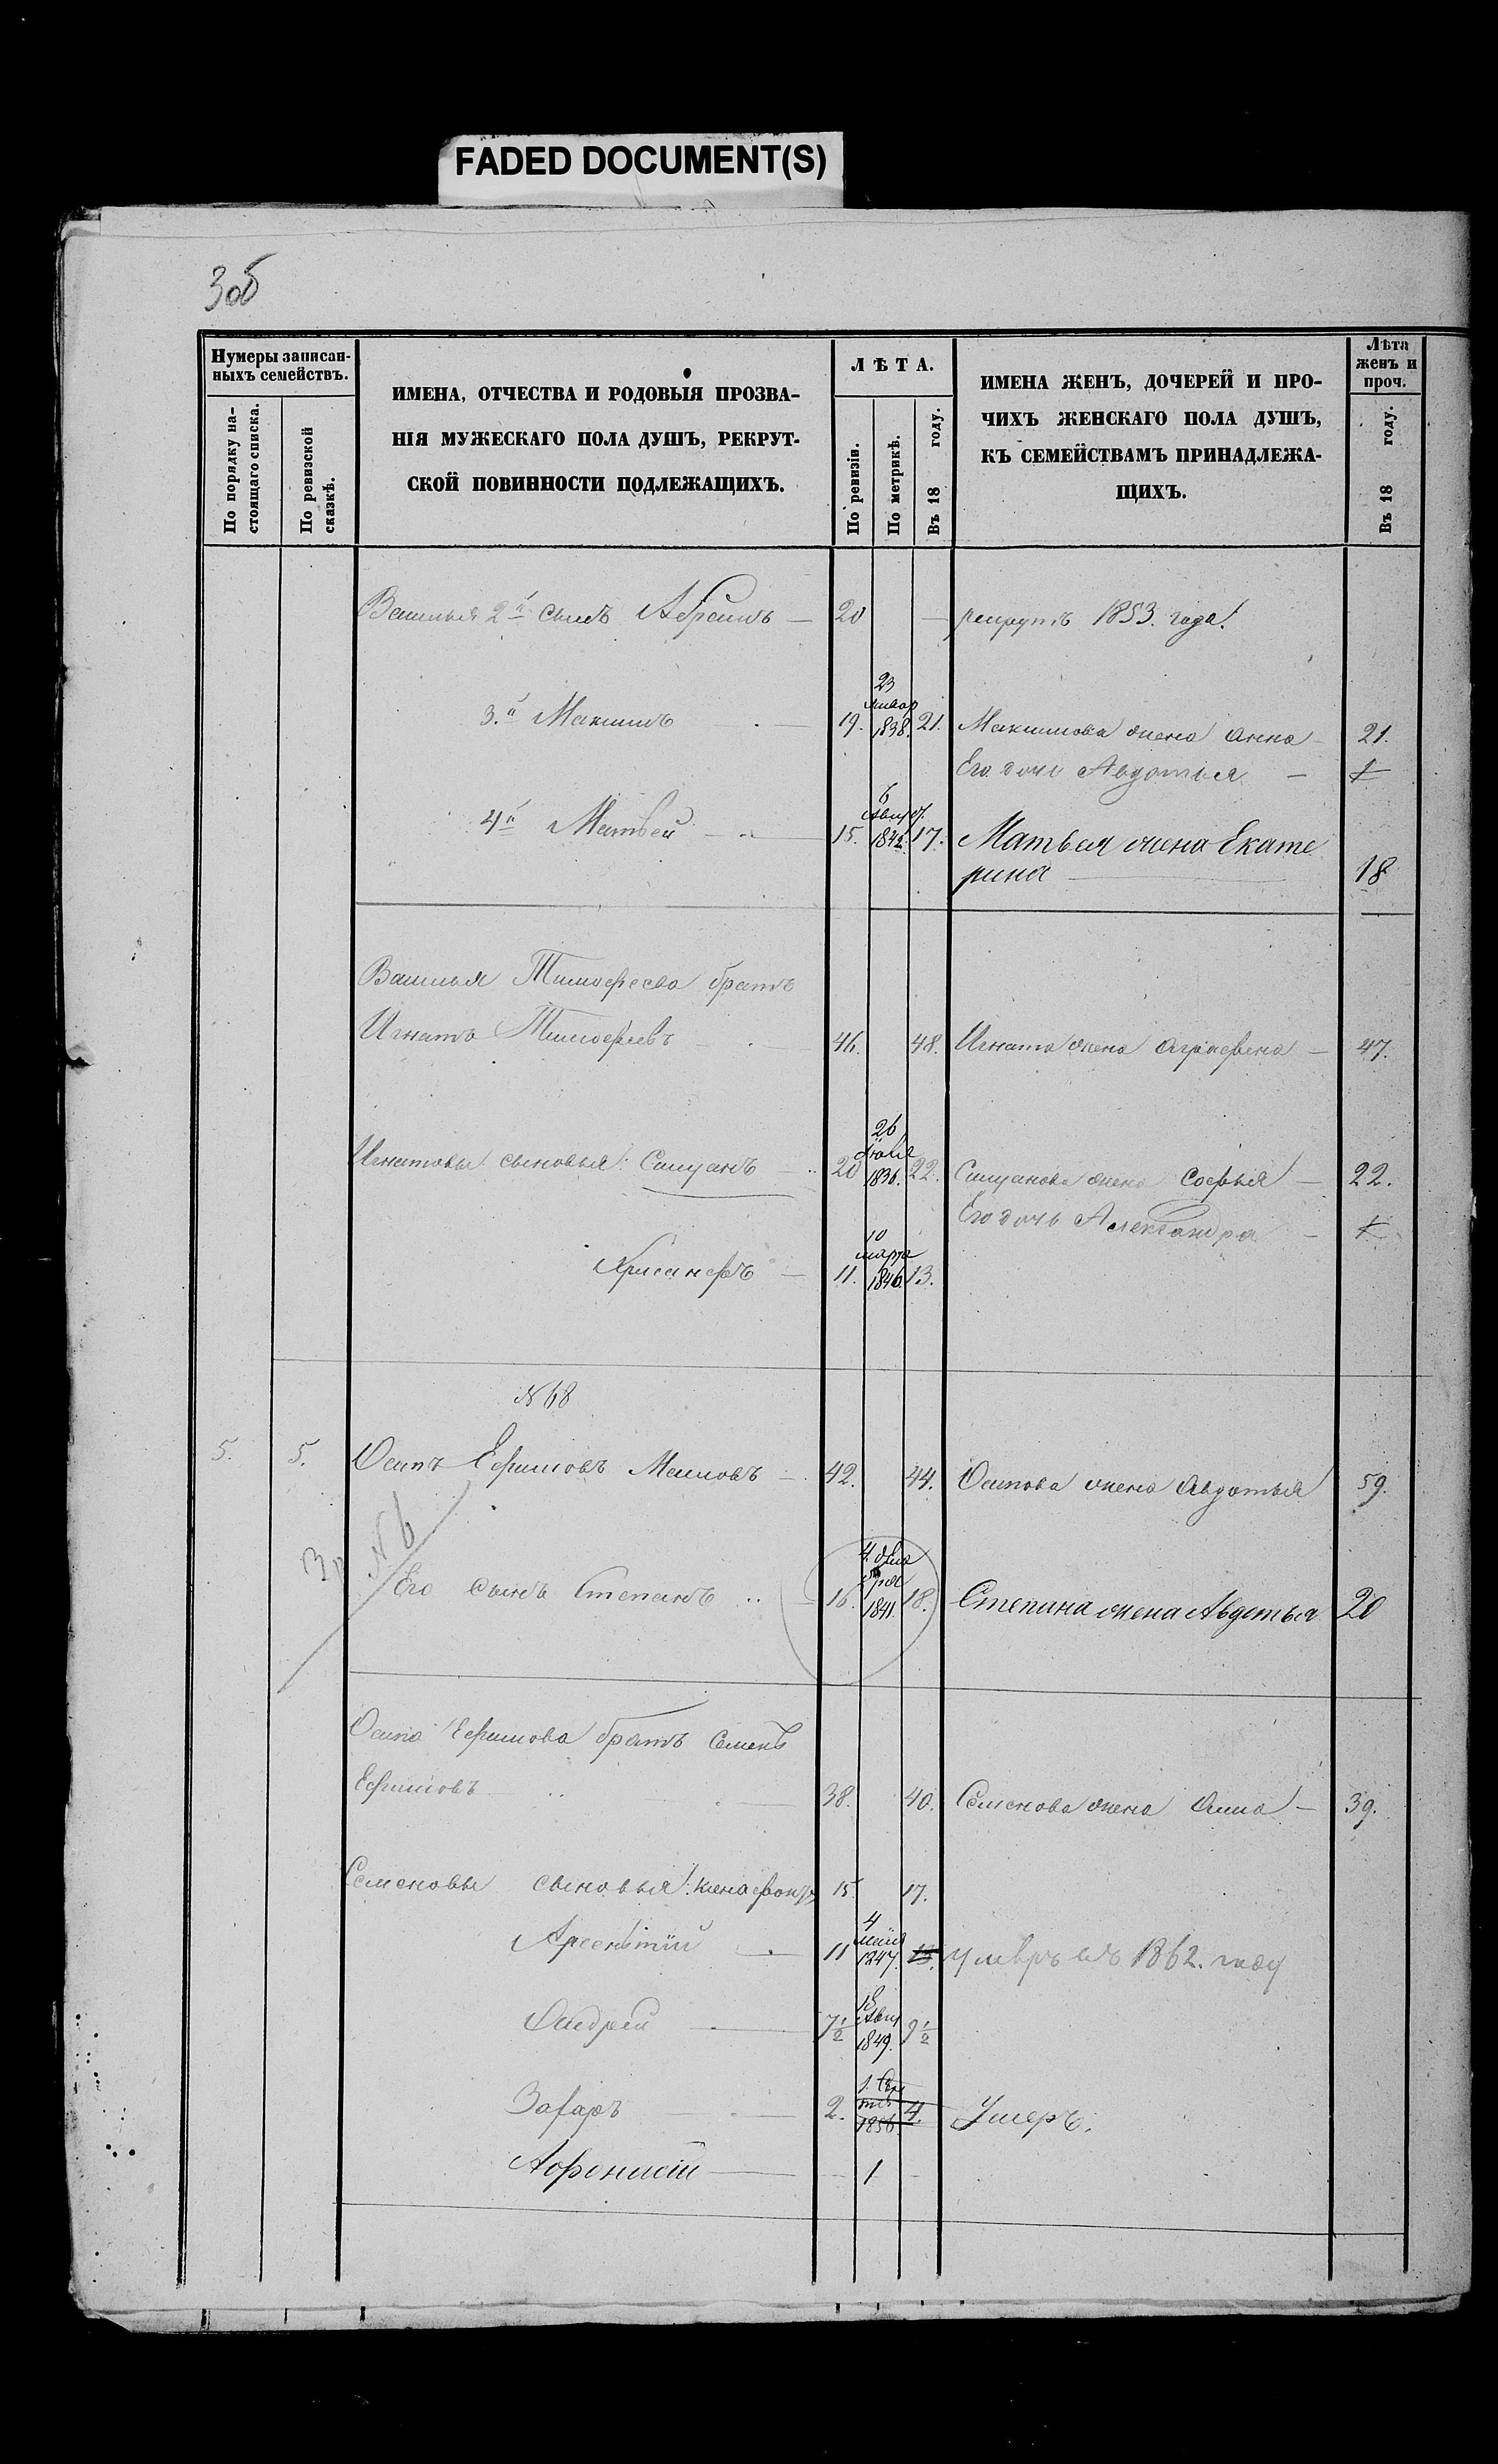 FADED DOCUMENT(S)
Нумеры записан-
ныхъ семействъ.
По порядку на-
стоящаго списка.
По ревизской
сказкѣ.
ИМЕНА, ОТЧЕСТВА И РОДОВЫЯ ПРОЗВА-
НІЯ МУЖЕСКАГО ПОЛА ДУШЪ, РЕКРУТ-
СКОЙ ПОВИННОСТИ ПОДЛЕЖАЩИХЪ.
ЛѢТА.
По ревизіи.
По метрикѣ.
Въ 18 году.
ИМЕНА ЖЕНЪ, ДОЧЕРЕЙ И ПРО-
ЧИХЪ ЖЕНСКАГО ПОЛА ДУШЪ,
КЪ СЕМЕЙСТВАМЪ ПРИНАДЛЕЖА-
ЩИХЪ.
Лѣта
женъ и
проч.
Въ 18 году.
Василья 2й сынъ Абрамъ — 20 — рекрутъ 1853. года.
3.й Максимъ — 19. 23 Январ 1838. 21. Максимова жена Анна — 21.
Его дочь Авдотья —
4й Матвей — 15. 6 Август. 1842. 17. Матвея жена Екате
рина — 18
Василья Тимофеева братъ
Игнатъ Тимофеевъ — 46. 48. Игната жена Аграфена — 47.
Игнатовы сыновья: Силуанъ — 20 26 Июля 1836. 22. Силуанова жена Софья — 22.
Его дочь Александра —
Хрисанфъ — 11. 10 марта 1846. 13.
№ 68
5. 5. Осипъ Ефимовъ Маиловъ — 42. 44. Осипова жена Авдотья 59.
№ 6
Его сынъ Степанъ .. 16. 4. 1841. 18. Степана жена Авдотья 20
Осипа Ефимова братъ Семенъ
Ефимовъ — 38. 40. Семенова жена Анна — 39.
Семеновы сыновья: Ксенофонтъ 15. 17.
Арсентій — 11 4 маія 1847. 13. умеръ въ 1862. году
Андрей — 7½ 18 Авгу 1849. 9½
Захаръ — 2. 1. Сен тяб 1856. 4. Умеръ.
Афонасій — 1 —